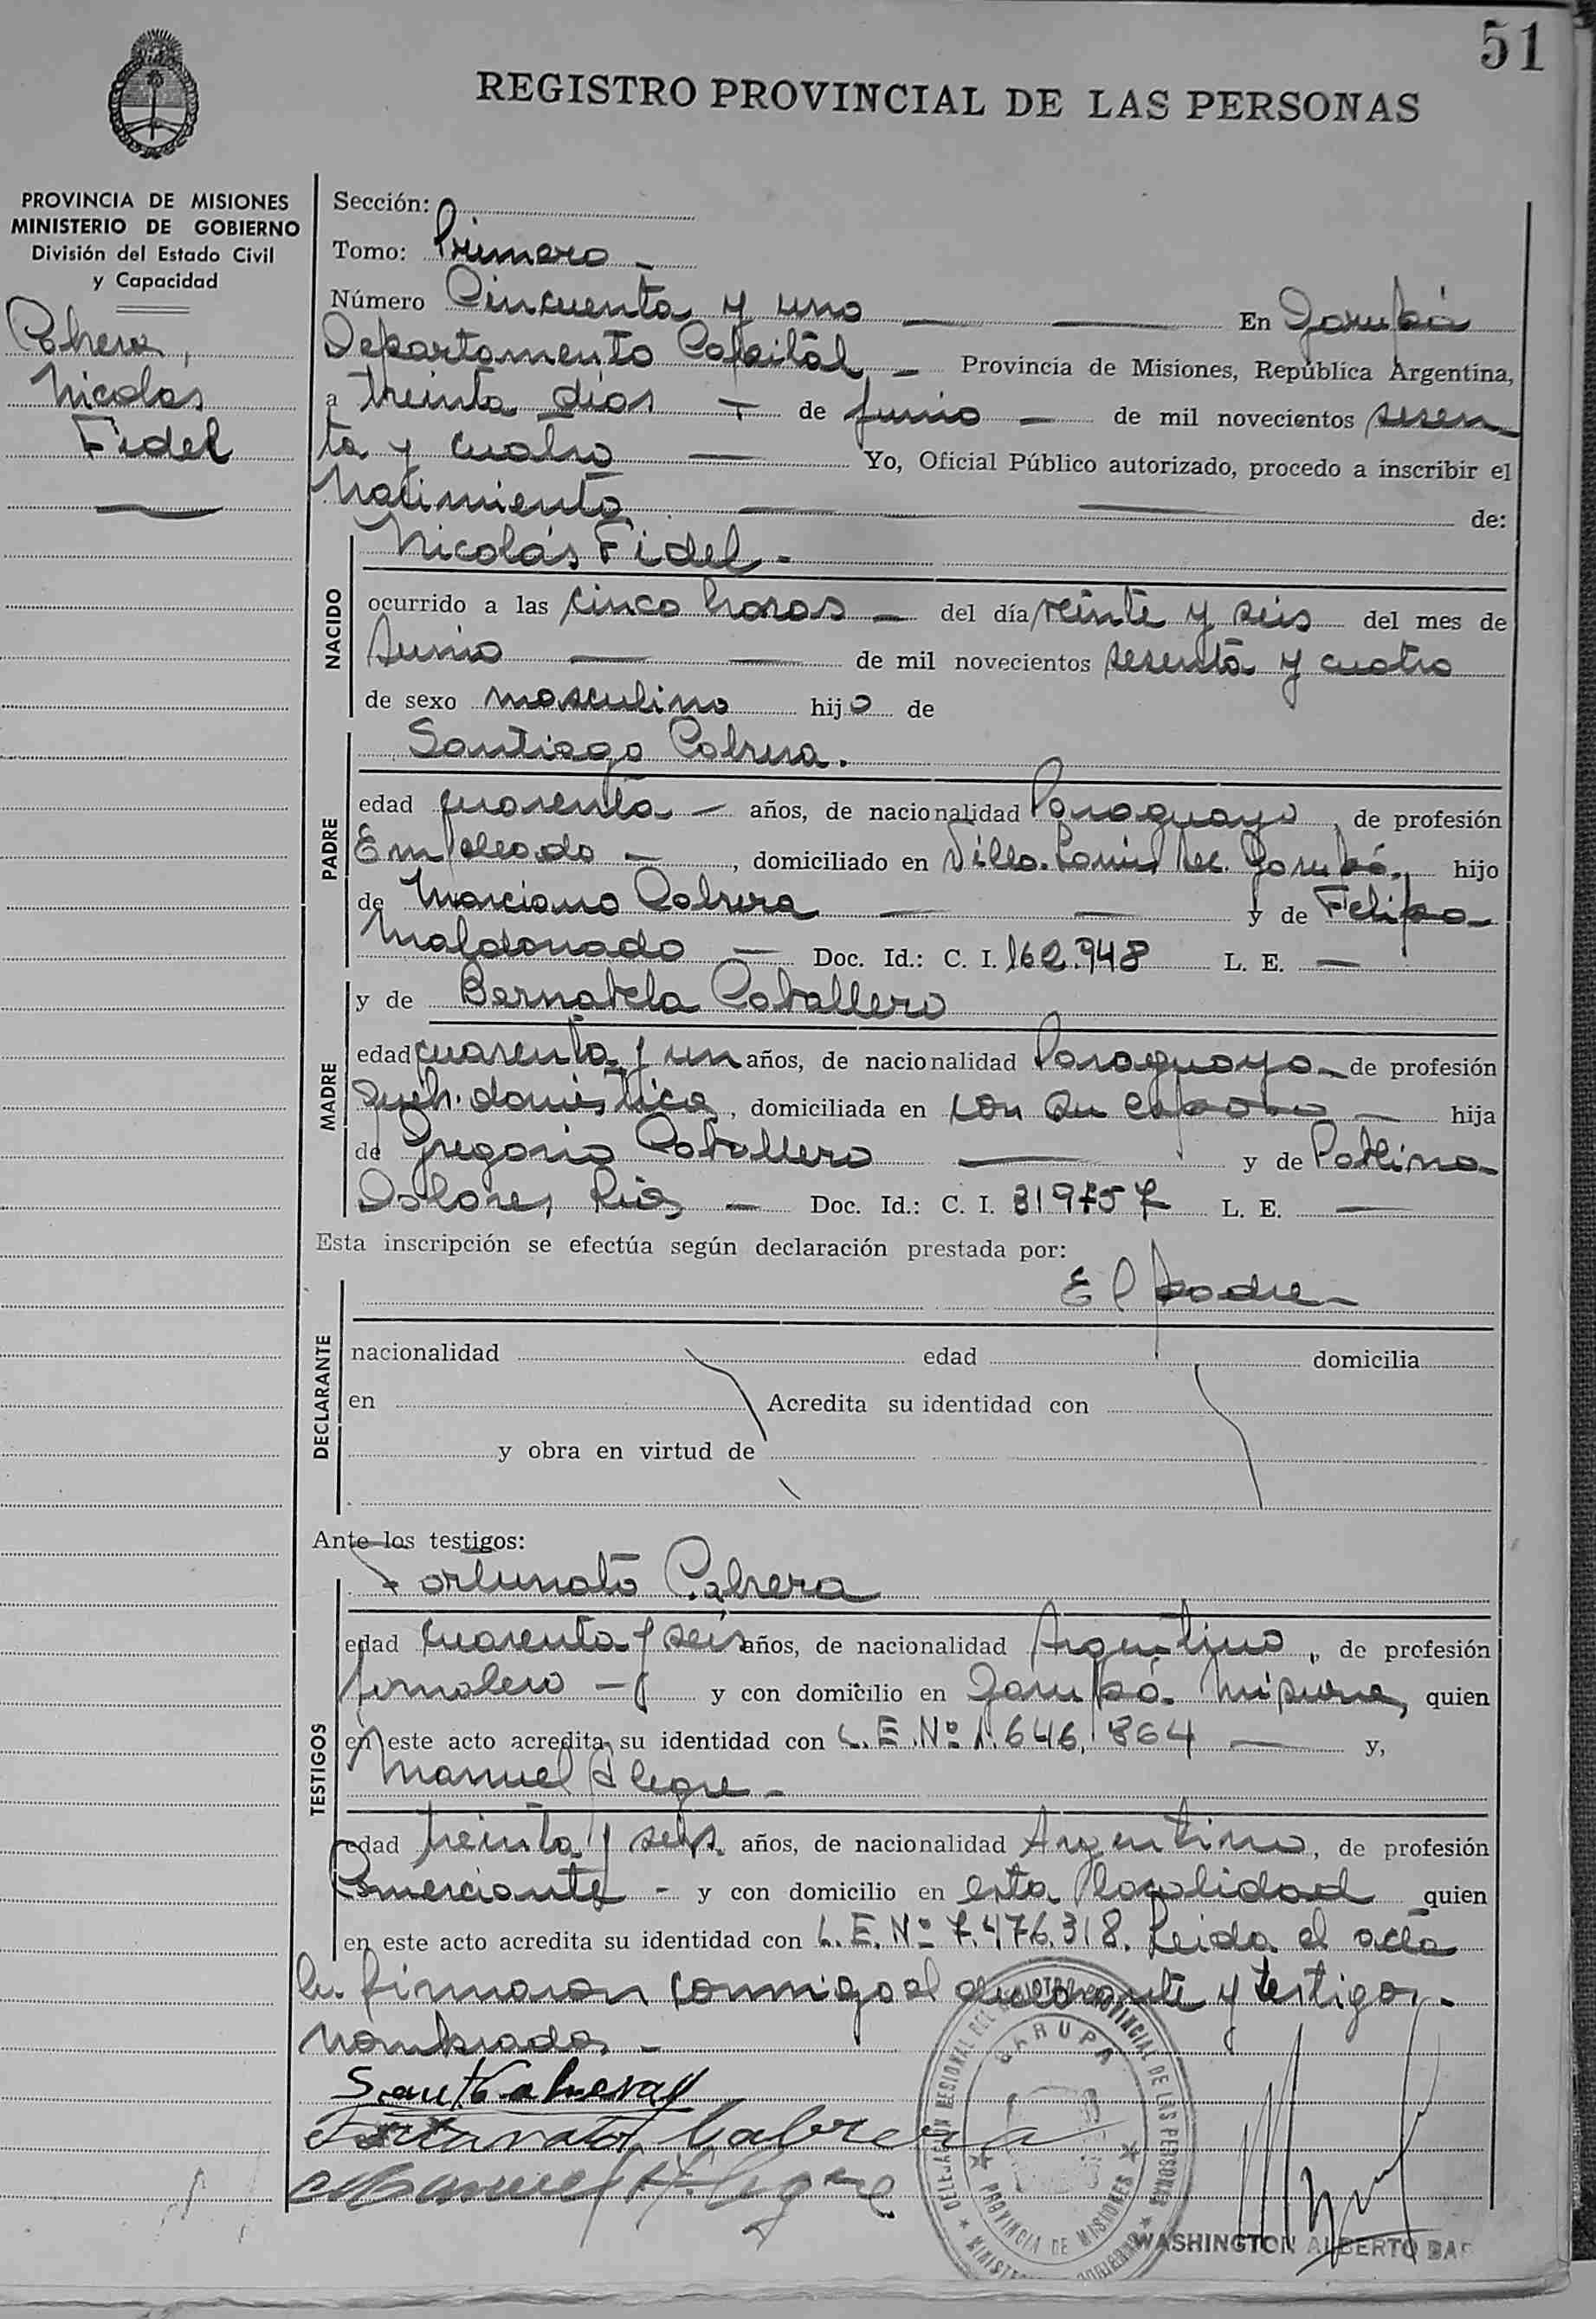 51
REGISTRO PROVINCIAL DE LAS PERSONAS
PROVINCIA DE MISIONES
MINISTERIO DE GOBIERNO
División del Estado Civil
y Capacidad
Cabrera,
Nicolas
Fidel
Sección:
Tomo: Primero -
Número Cincuenta y uno — — En Garupá
Departamento Capital, - Provincia de Misiones, República Argentina,
a treinta dias - de junio - de mil novecientos sesen
ta y cuatro — Yo, Oficial Público autorizado, procedo a inscribir el
Nacimiento — — de:
Nicolás Fidel -
NACIDO
ocurrido a las cinco horas - del día veinte y seis del mes de
Junio — — de mil novecientos sesenta y cuatro
de sexo masculino hijo de
Santiago Cabrera.
PADRE
edad cuarenta - años, de nacionalidad Paraguayo, de profesión
Empleado -, domiciliado en Villa Garupá, hijo
de Marciano Cabrera — — y de Felipa
Maldonado — Doc. Id.: C. I. 162.948 L. E. —
MADRE
y de Bernabela Caballero
edad cuarenta y un años, de nacionalidad Paraguaya - de profesión
doméstica, domiciliada en con su esposo - hija
de Gregorio Caballero — y de
Dolores Rios - Doc. Id.: C. I. L. E. —
Esta inscripción se efectúa según declaración prestada por:
El padre -
DECLARANTE
nacionalidad edad domicilia
en Acredita su identidad con
y obra en virtud de
Ante los testigos:
Fortunato Cabrera
TESTIGOS
edad cuarenta y seis años, de nacionalidad Argentino, de profesión
jornalero - y con domicilio en Garupá. Misiones, quien
en este acto acredita su identidad con L.E.Nº 1.646.864 — y,
Manuel Alegre -
edad treinta y seis años, de nacionalidad Argentino, de profesión
Comerciante - y con domicilio en esta localidad quien
en este acto acredita su identidad con L.E.Nº 7.476.318. Leida el acta
la firmaron conmigo el declarante y testigos
nombrados -
Fortunato Cabrera
Manuel Alegre
DELEGACIÓN REGIONAL DEL REGISTRO PROVINCIAL DE LAS PERSONAS
GARUPA
PROVINCIA DE MISIONES
WASHINGTON ALBERTO